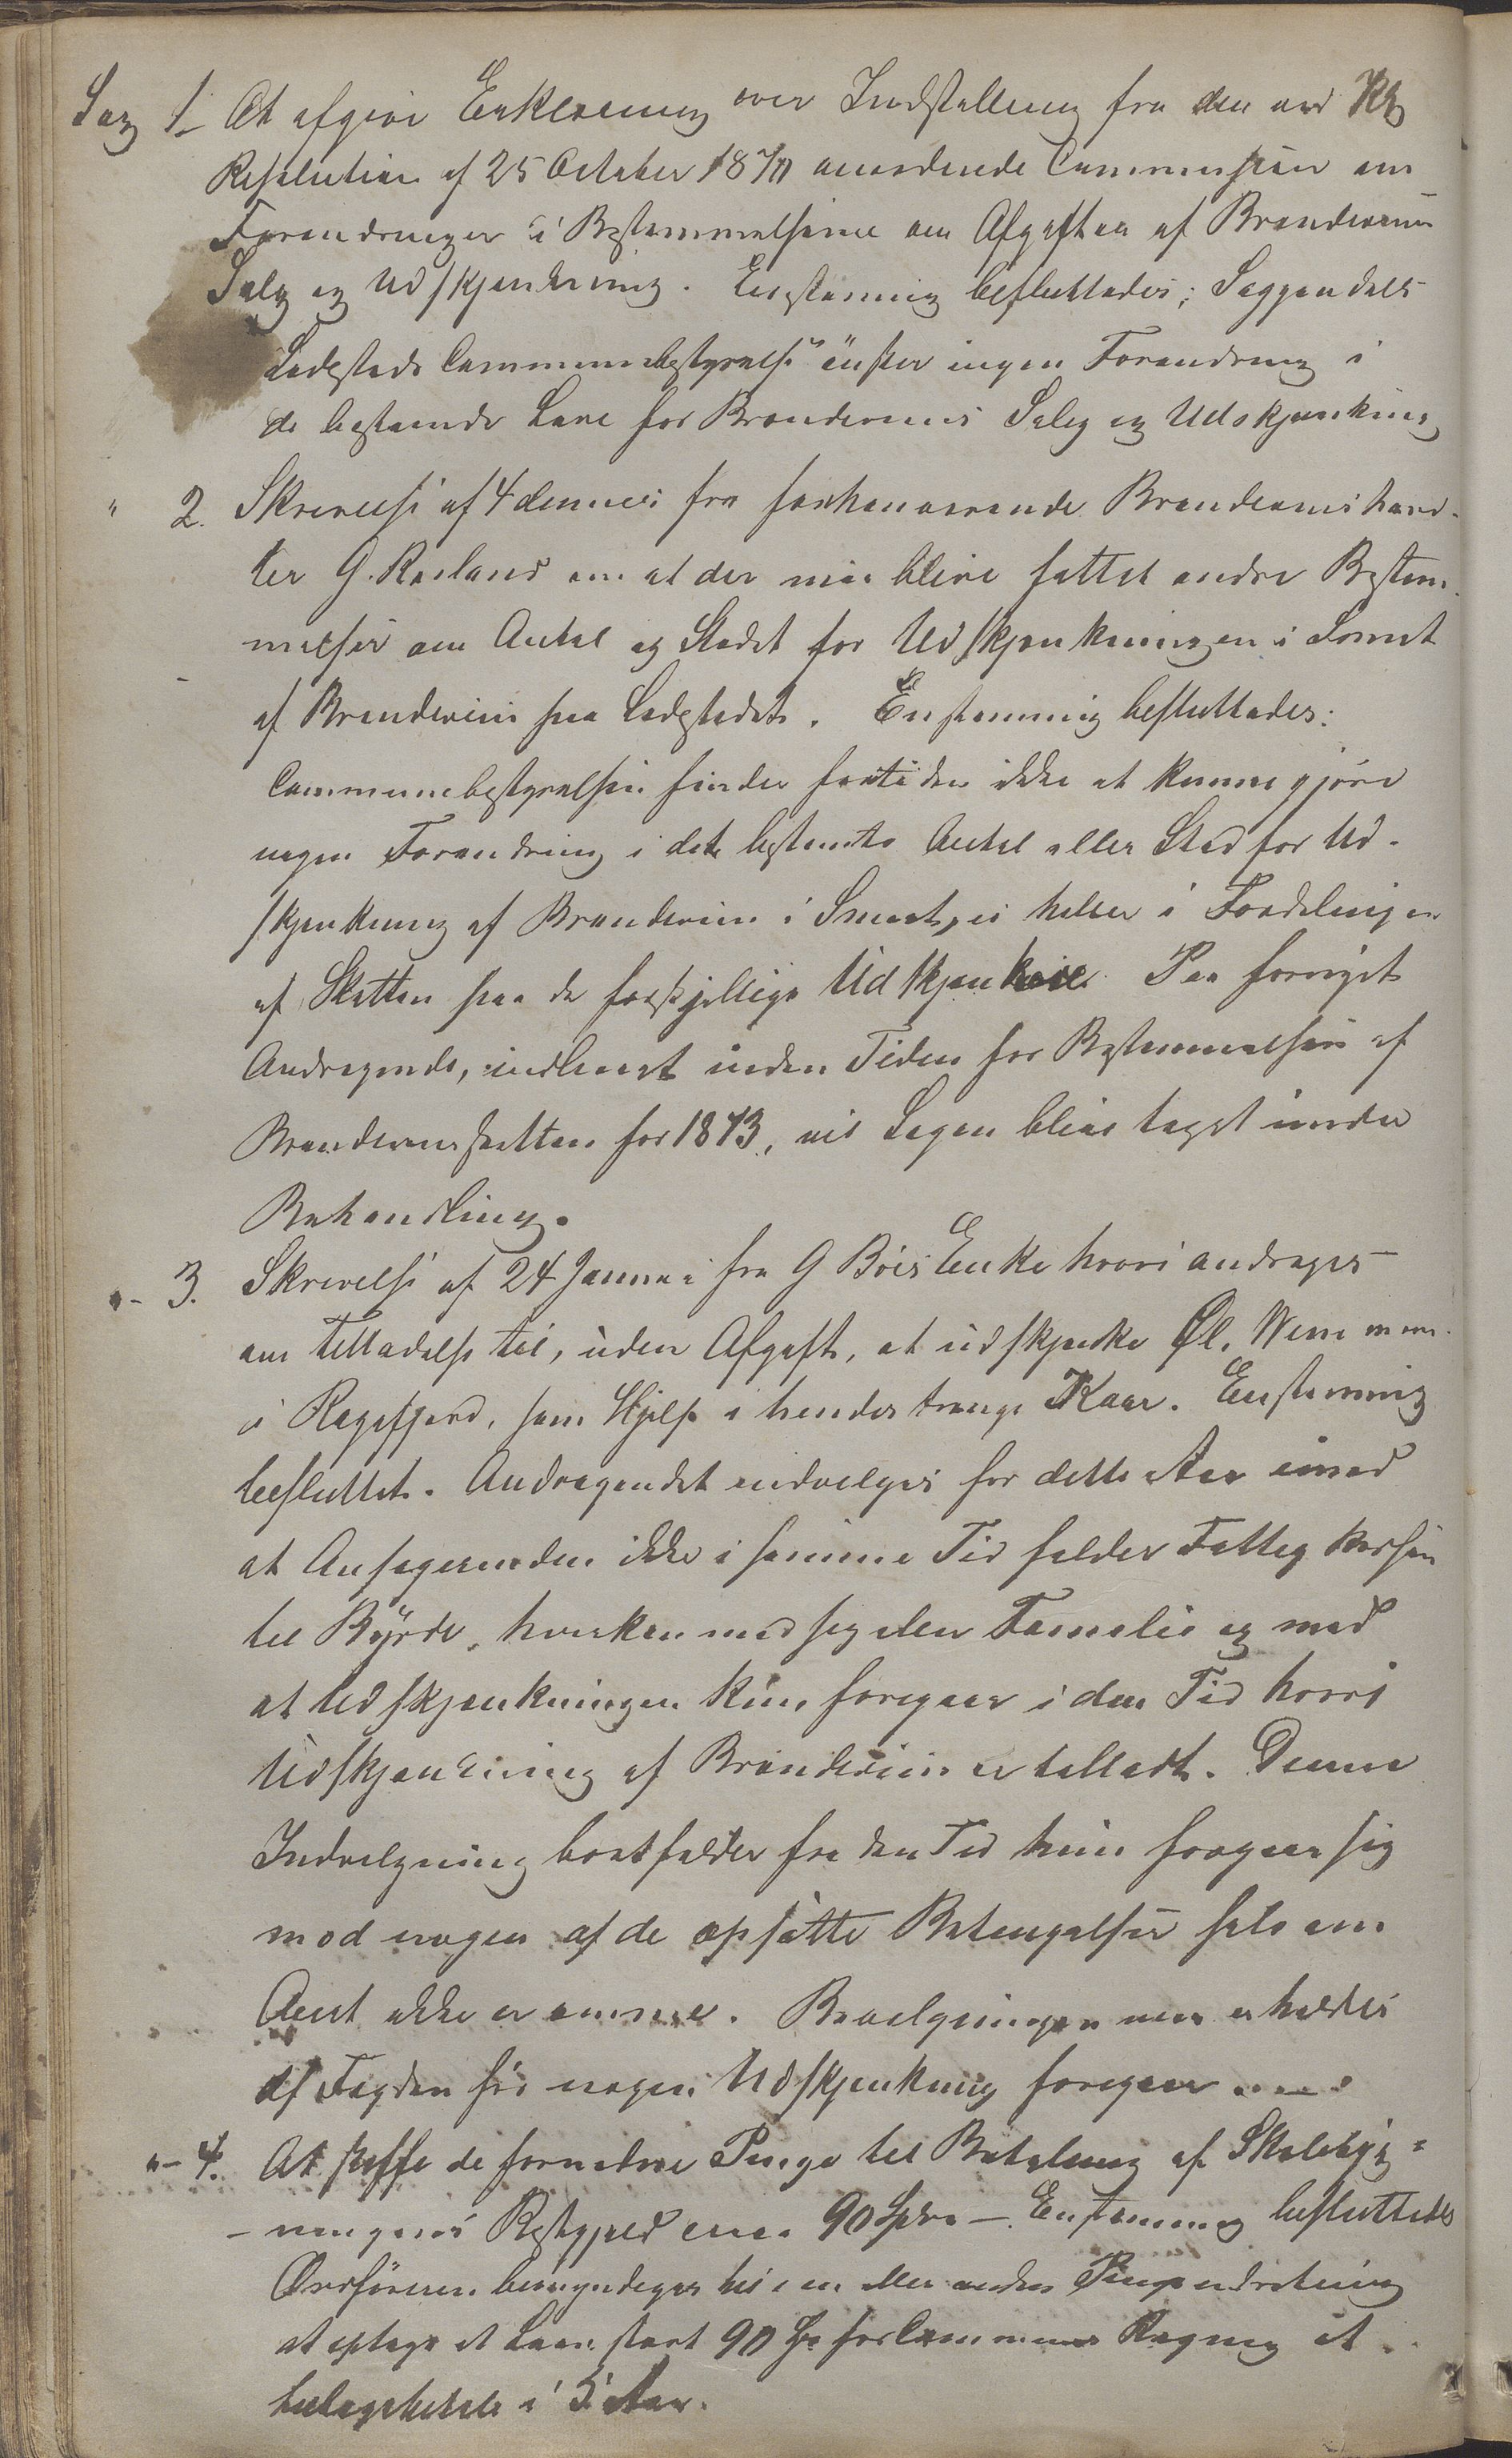 Sag 1. At afgive Erklæring over Indstilling fra den ved Kgl
Resolution af 25 October 1870 anordnede Commission om
Forandringer i Bestemmelserne om Afgiften af Brændeviins
Salg og Udskjænkning. Enstemmig besluttedes: Soggendals
Ladesteds Communebestyrelse ønsker ingen Forandring i
de bestaaende Love for Brændeviins Salg og Udskjænkning
" 2. Skrivelse af 4 dennes fra forhenværende Brændeviinshand-
ler G. Rasland om at der maa blive fattet andre Bestem-
melser om Antal og Stedet for Udskjænkningen i Smaat
af Brændeviin paa Ladestedet. Enstemmig besluttedes:
Communebestyrelsen finder for tiden ikke at kunne gjøre
nogen Forandring i det bestemte Antal eller Sted for Ud-
skjænkning af Brændeviin i Smaat, ei heller i Fordelingen
af Skatten paa de forskjellige Udskjænkere. Paa fornyet
Andragende, indleveret inden Tiden for Bestemmelsen af
Brændeviinsskatten for 1873, vil Sagen blive taget under
Behandling.
"- 3. Skrivelse af 24 Januar fra G Bøes Enke hvori andrages
om Tilladelse til, uden Afgift, at udskjænke Øl, Viin m m
i Rægefjord, som Hjelp i hendes trange Kaar. Enstemmig
besluttet. Andragendet indvilges for dette Aar imod
at Ansøgerinden ikke i samme Tid falder Fattigkassen
til Byrde, hverken med sig eller Familie og mod
at Udskjænkningen kun foregaar i den Tid hvori
Udskjænkning af Brændeviin er tilladt. Denne
Indvilgning bortfalder fra den Tid hun forgaar sig
mod nogen af de opsatte Betingelser selv om
Aaret ikke er omme. Bevilgningen maa erholdes
af Fogden før nogen Udskjænkning foregaar.
"- 4. At skaffe de fornødne Penge til Betaling af Skolebyg-
ningens Restgjeld circa 90 Spd. Enstemmig besluttedes
Ordføreren bemyndiges til i en eller anden Pengeindretning
at optage et Laan stort 90 Sp for Communens Regning at
tilbagebetale i 5 Aar.